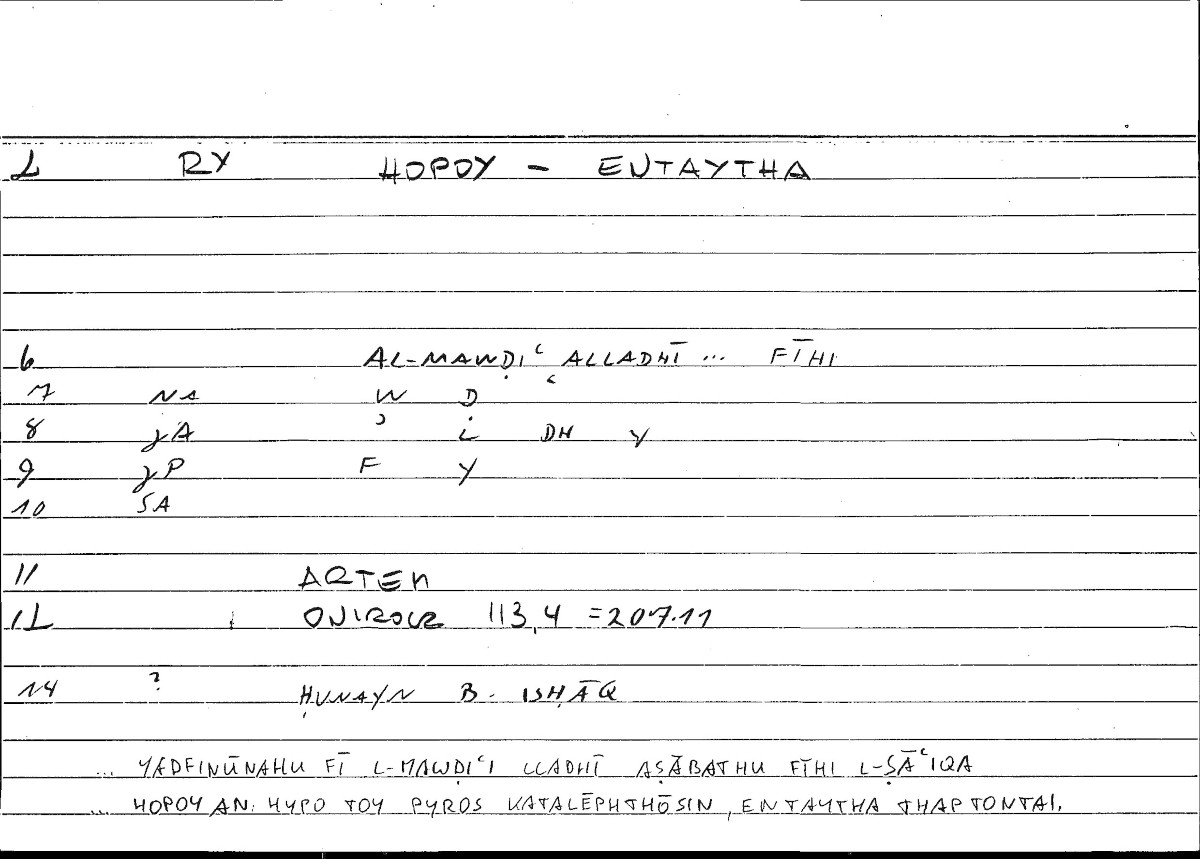 L RY HOPOY - ENTAYTHA
6 AL-MAWḌIʿ ALLADHĪ ... FĪHI
7 NS W Ḍ ʿ
8 gA ʾ L DH Y
9 gP F Y
10 SA
11 ARTEM
12 ONIROCR 113,4 = 207.11
14 ? ḤUNAYN B. ISḤĀQ
... YADFINŪNAHU FĪ L-MAWḌIʿI LLADHĪ AṢĀBATHU FĪHI L-ṢĀʿIQA
... HOPOY AN HYPO TOY PYROS KATALĒPHTHŌSIN, ENTAYTHA THAPTONTAI.